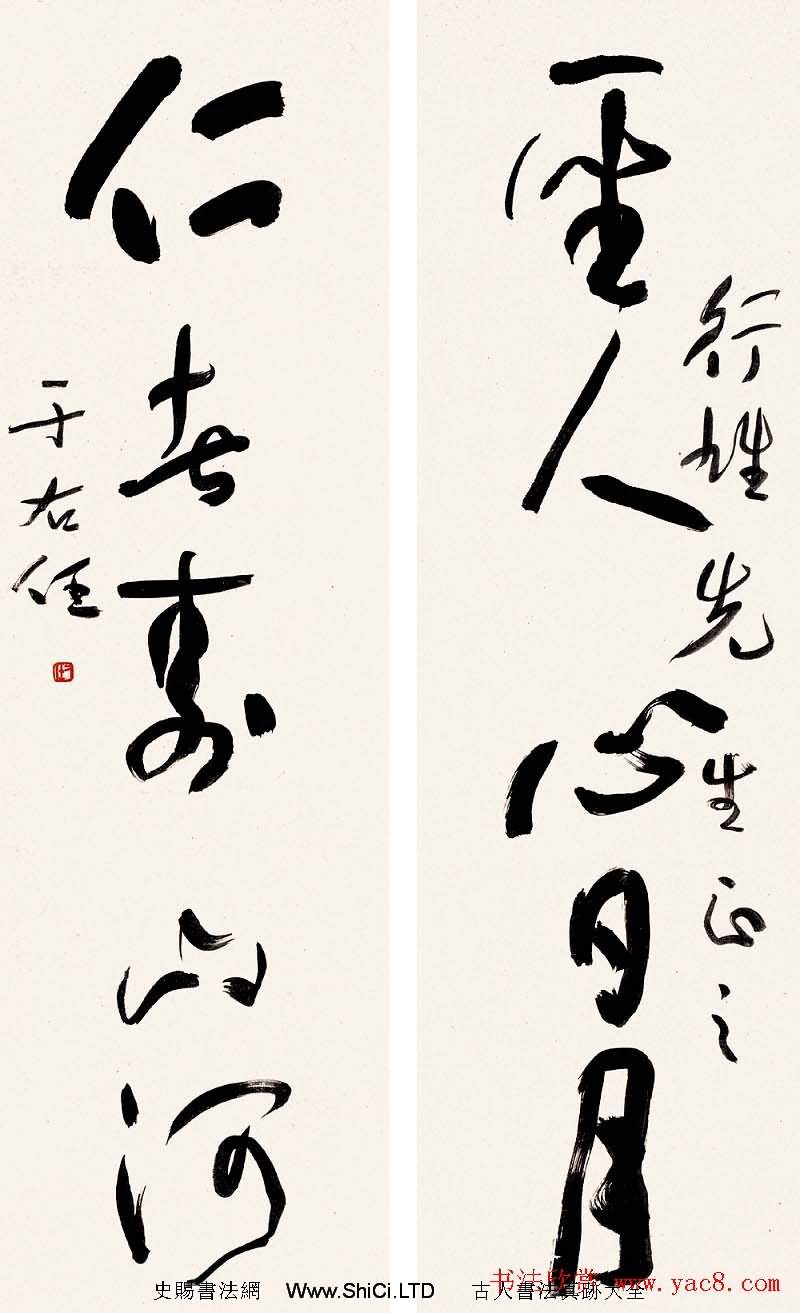 行雄先生正之
聖人心日月
仁者壽山河
于右任
书法欣赏 www.yac8.com
史賜書法網 Www.ShiCi.LTD 古人書法真跡大全